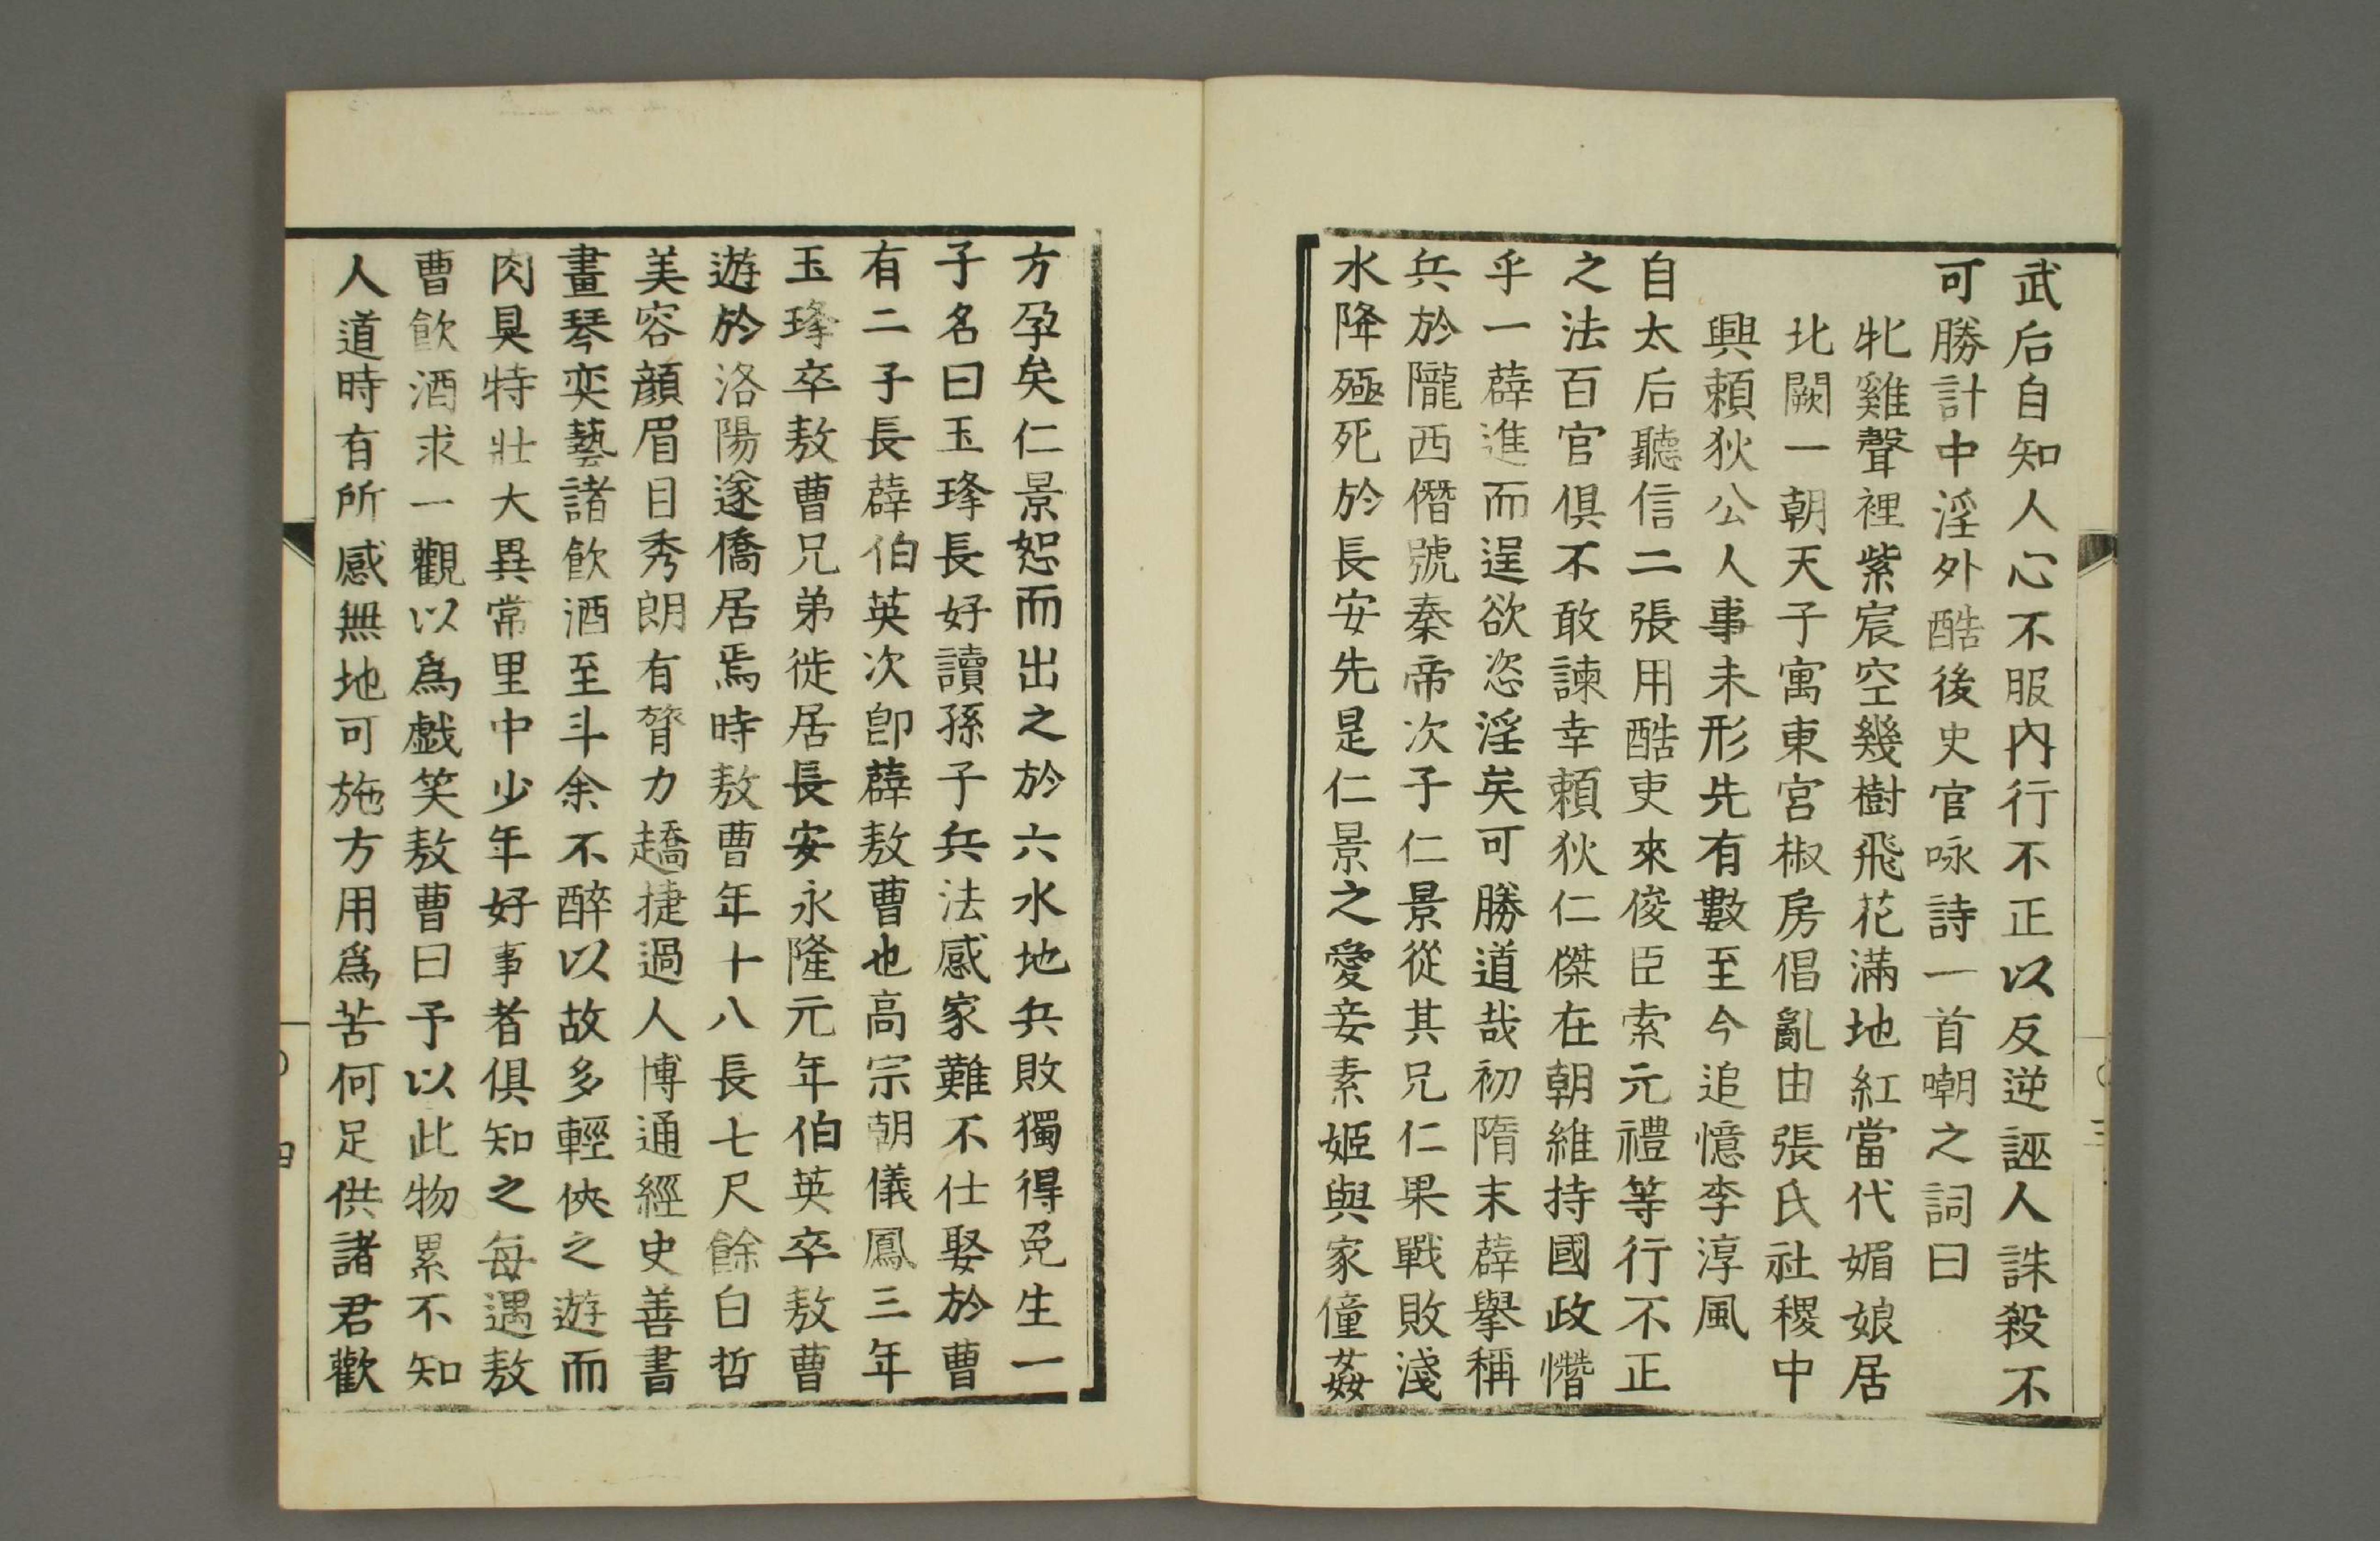 武后自知人心不服內行不正以反逆誣人誅殺不
可勝計中淫外酷後史官咏詩一首嘲之詞曰
牝雞聲裡紫宸空幾樹飛花滿地紅當代媚娘居
北闕一朝天子寓東宮椒房倡亂由張氏社稷中
興賴狄公人事未形先有數至今追憶李淳風
自太后聽信二張用酷吏來俊臣索元禮等行不正
之法百官俱不敢諫幸賴狄仁傑在朝維持國政憯
乎一薛進而逞欲恣淫矣可勝道哉初隋末薛舉稱
兵於隴西僭號秦帝次子仁景從其兄仁果戰敗淺
水降殛死於長安先是仁景之愛妾素姬與家僮姦
方孕矣仁景恕而出之於六水地兵敗獨得免生一
子名曰玉㻴長好讀孫子兵法感家難不仕娶於曹
有二子長薛伯英次卽薛敖曹也高宗朝儀鳳三年
玉㻴卒敖曹兄弟徙居長安永隆元年伯英卒敖曹
遊於洛陽遂僑居焉時敖曹年十八長七尺餘白晳
美容顔眉目秀朗有膂力趫捷過人博通經史善書
畫琴奕藝諸飲酒至斗余不醉以故多輕俠之遊而
肉具特壯大異常里中少年好事者俱知之每遇敖
曹飲酒求一觀以爲戱笑敖曹曰予以此物累不知
人道時有所感無地可施方用爲苦何足供諸君歡
三
四